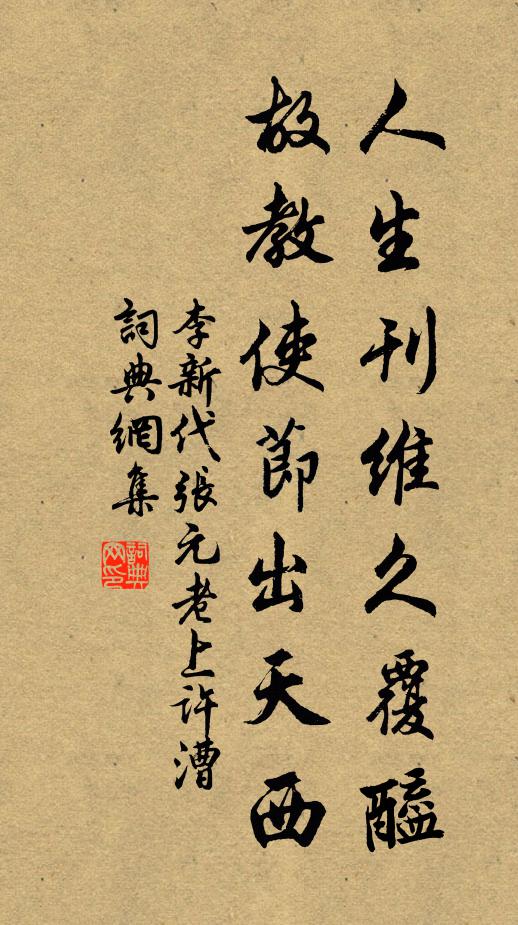 人生刊維久覆醯
故教使節出天西
李新代張元老上許漕
詞典網集
詞典网印